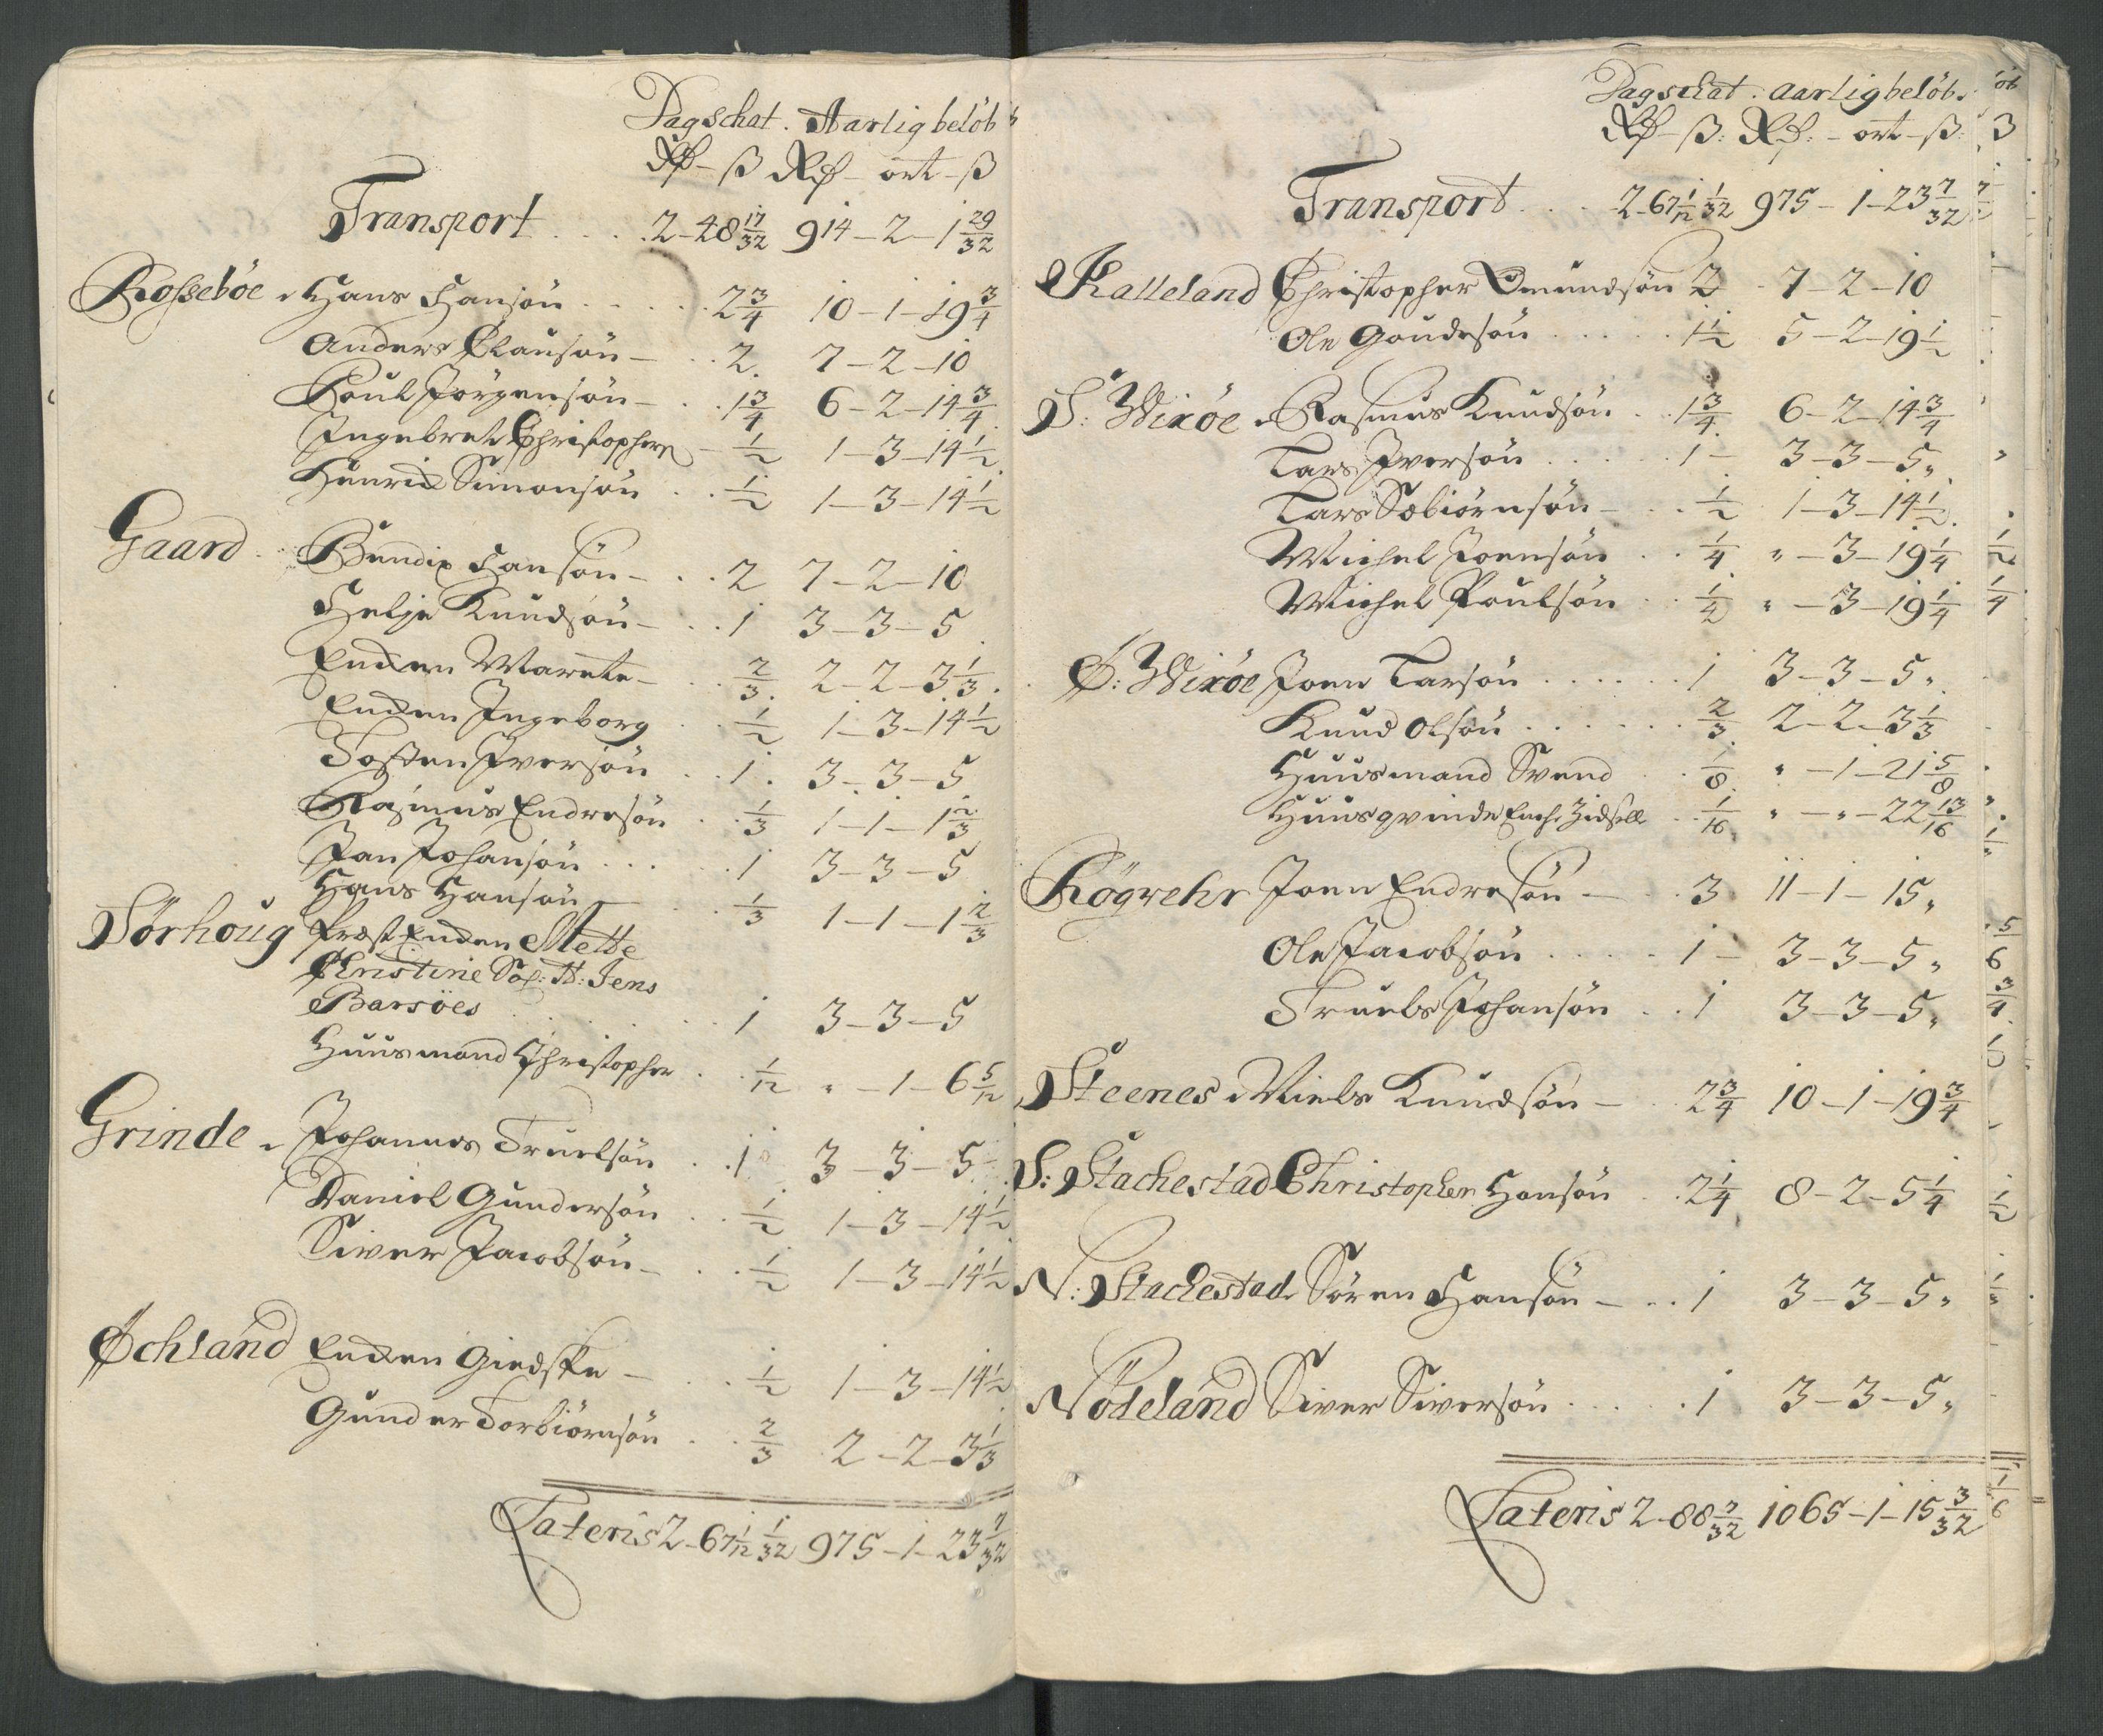 Dagschat. Aarlig beløb
Rd – ß Rd – ort – ß
Transport . . . . 2–48 17/32 914–2–1 29/32
Rossebøe Hans Hansøn . . . . 2 3/4 10–1–19 3/4
Anders Clausøn – . . 2. 7–2–10
Poul Jørgensøn – . . 1 3/4 6–2–14 3/4
Ingebret Christophers – 1/2 1–3–14 1/2
Henrich Simonsøn . . 1/2 1–3–14 1/2
Gaard Bendix Hansøn – . . 2 7–2–10
Helje Knudsøn – . . 1 3–3–5
Encken Marete – . . 2/3. 2–2–3 1/3.
Encken Ingeborg . . 1/2 1–3–14 1/2
Tosten Iversøn . . 1. 3–3–5
Rasmus Endresøn . . 1/3 1–1–1 2/3
Jan Johansøn . . . . 1 3–3–5
Hans Hansøn – . 1/3 1–1–1 2/3
Sørhoug Præst Encken Mette
Christine Sal: H: Jens
Barsøes . . . . . . 1 3–3–5
Huusmand Christopher . . 1/12 " –1–6 5/12
Grinde Johannes Truelsøn . . 1 3–3–5
Daniel Gundersøn . . 1/2 1–3–14 1/2
Siver Jacobsøn – . . 1/2 1–3–14 1/2
Øchland Encken Giedske – . . 1/2 1–3–14 1/2
Gunder Torbiørnsøn . . 2/3 2–2–3 1/3
Lateris 2–67 1/12 1/32 975–1–23 7/32
Dagschat. Aarlig beløb.
Rd – ß: Rd: – ort – ß:
Transport . . . 2–67 1/12 1/32 975–1–23 7/32
Kalleland Christopher Omundsøn 2 7–2–10
Ole Goudesøn . . . . . 1 1/2 5–2–19 1/2
S: Wixøe Rasmus Knudsøn . . 1 3/4. 6–2–14 3/4
Lars Iversøn . . . . . 1 – 3–3–5"
Lars Sebiørnsøn – . . 1/2 1–3–14 1/2.
Michel Joensøn . . 1/4 " –3–19 1/4
Michel Poulsøn . . 1/4 " –3–19 1/4
Ø: Wixøe Joen Larsøn . . . . . 1 3–3–5"
Knud Olsøn . . . . . . 2/3 2–2–3 1/3
Huusmand Svend . . 1/8. " –1–21 5/8
Huusqvinde Enche Zidsell . . 1/16 " – " –22 13/16
Røgvehr Joen Endresøn – . . 3 11–1–15"
Ole Jacobsøn . . . . . 1 – 3–3–5"
Truels Johansøn . . 1 3–3–5"
Steenes Niels Knudsøn – . . 2 3/4 10–1–19 3/4
S: Stachestad Christopher Hansøn . . 2 1/4 8–2–5 1/4
N: Stachestad Søren Hansøn – . . 1 3–3–5"
Nødeland Siver Siversøn . . . . . 1 3–3–5"
Lateris 2–88 7/32 1065–1–15 3/32